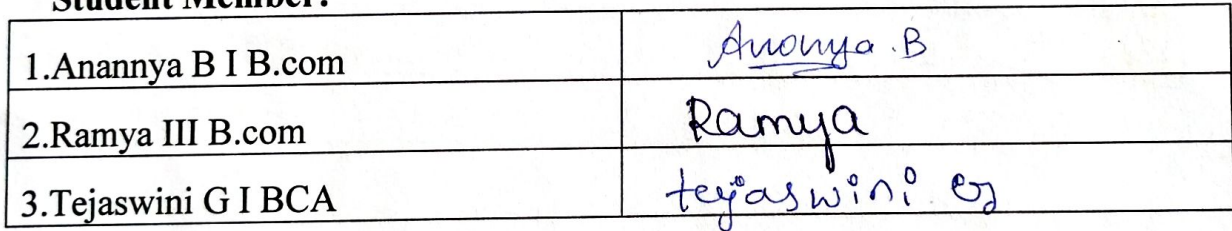 Student Member:
1.Anannya B I B.com Ananya.B
2.Ramya III B.com Ramya
3.Tejaswini G I BCA tejaswini G